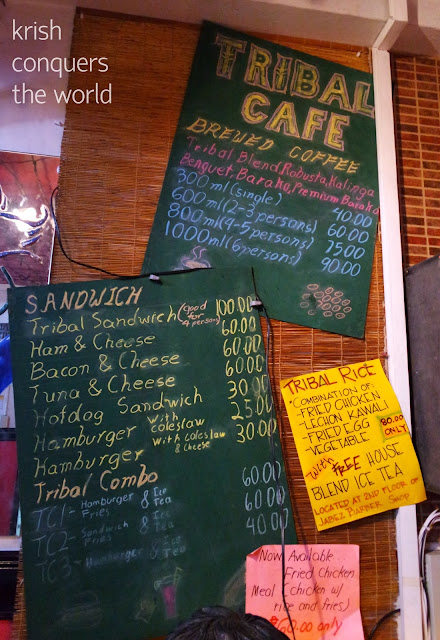 krish
conquers
the world
TRIBAL
CAFE
BREWED COFFEE
Tribal Blend, Robusta, Kalinga
Benguet, Barako, Premium Barako
300 ml (single) 40.00
600 ml (2-3 persons) 60.00
800 ml (4-5 persons) 75.00
1000 ml (6 persons) 90.00
SANDWICH
Tribal Sandwich (good for 4 persons) 100.00
Ham & Cheese 60.00
Bacon & Cheese 60.00
Tuna & Cheese 60.00
Hotdog Sandwich 30.00
Hamburger with coleslaw 25.00
Hamburger with coleslaw & cheese 30.00
Tribal Combo
TC1- Hamburger Fries & Ice Tea 60.00
TC2- Sandwich Fries & Ice Tea 60.00
TC3- Hamburger & Ice Tea 40.00
TRIBAL RICE
• COMBINATION OF:
-FRIED CHICKEN
-LECHON KAWALI
-FRIED EGG
-VEGETABLE
80.00
ONLY
With FREE HOUSE
BLEND ICE TEA
LOCATED AT 2ND FLOOR OF
JABEZ BARBER SHOP
Now Available
Fried Chicken
Meal (chicken w/
rice and fries)
60.00 only